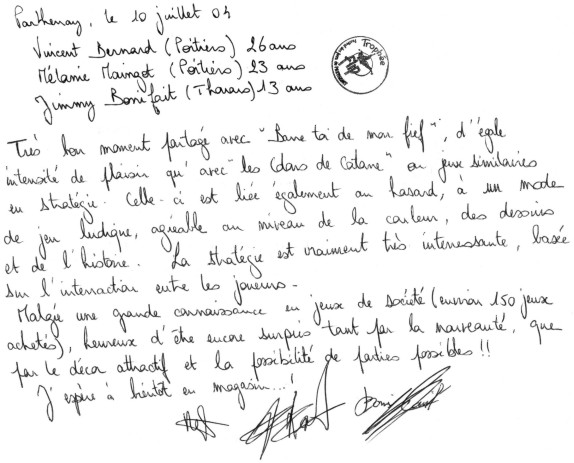 Parthenay, le 10 juillet 04
Vincent Bernard (Poitiers) 26 ans
Mélanie Maingot (Poitiers) 23 ans
Trophée
Jimmy Bonifait (Thouars) 13 ans
Très bon moment partagé avec "Barre toi de mon fief", d'égale
intensité de plaisir qu'avec "les Colons de Catane" ou jeux similaires
en stratégie. Celle-ci est liée également au hasard, à un mode
de jeu ludique, agréable au niveau de la couleur, des dessins
et de l'histoire. La stratégie est vraiment très interessante, basée
sur l'interaction entre les joueurs.
Malgré une grande connaissance en jeux de société (environ 150 jeux
achetés), heureux d'être encore surpris tant par la nouveauté, que
par le décor attractif et la possibilité de parties possibles !!
J'espère à bientôt en magasin...!